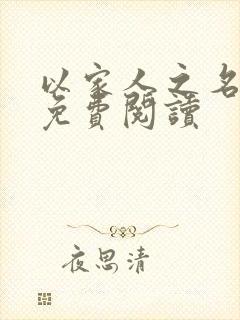 以家人之名
免費閱讀
夜思清